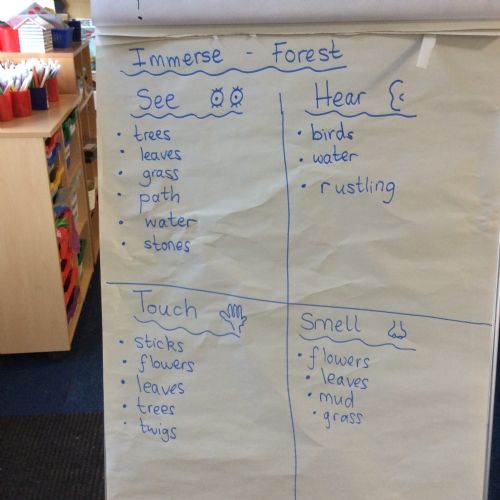 Immerse - Forest
See
• trees
• leaves
• grass
• path
• water
• stones
Hear
• birds
• water
• rustling
Touch
• sticks
• flowers
• leaves
• trees
• twigs
Smell
• flowers
• leaves
• mud
• grass